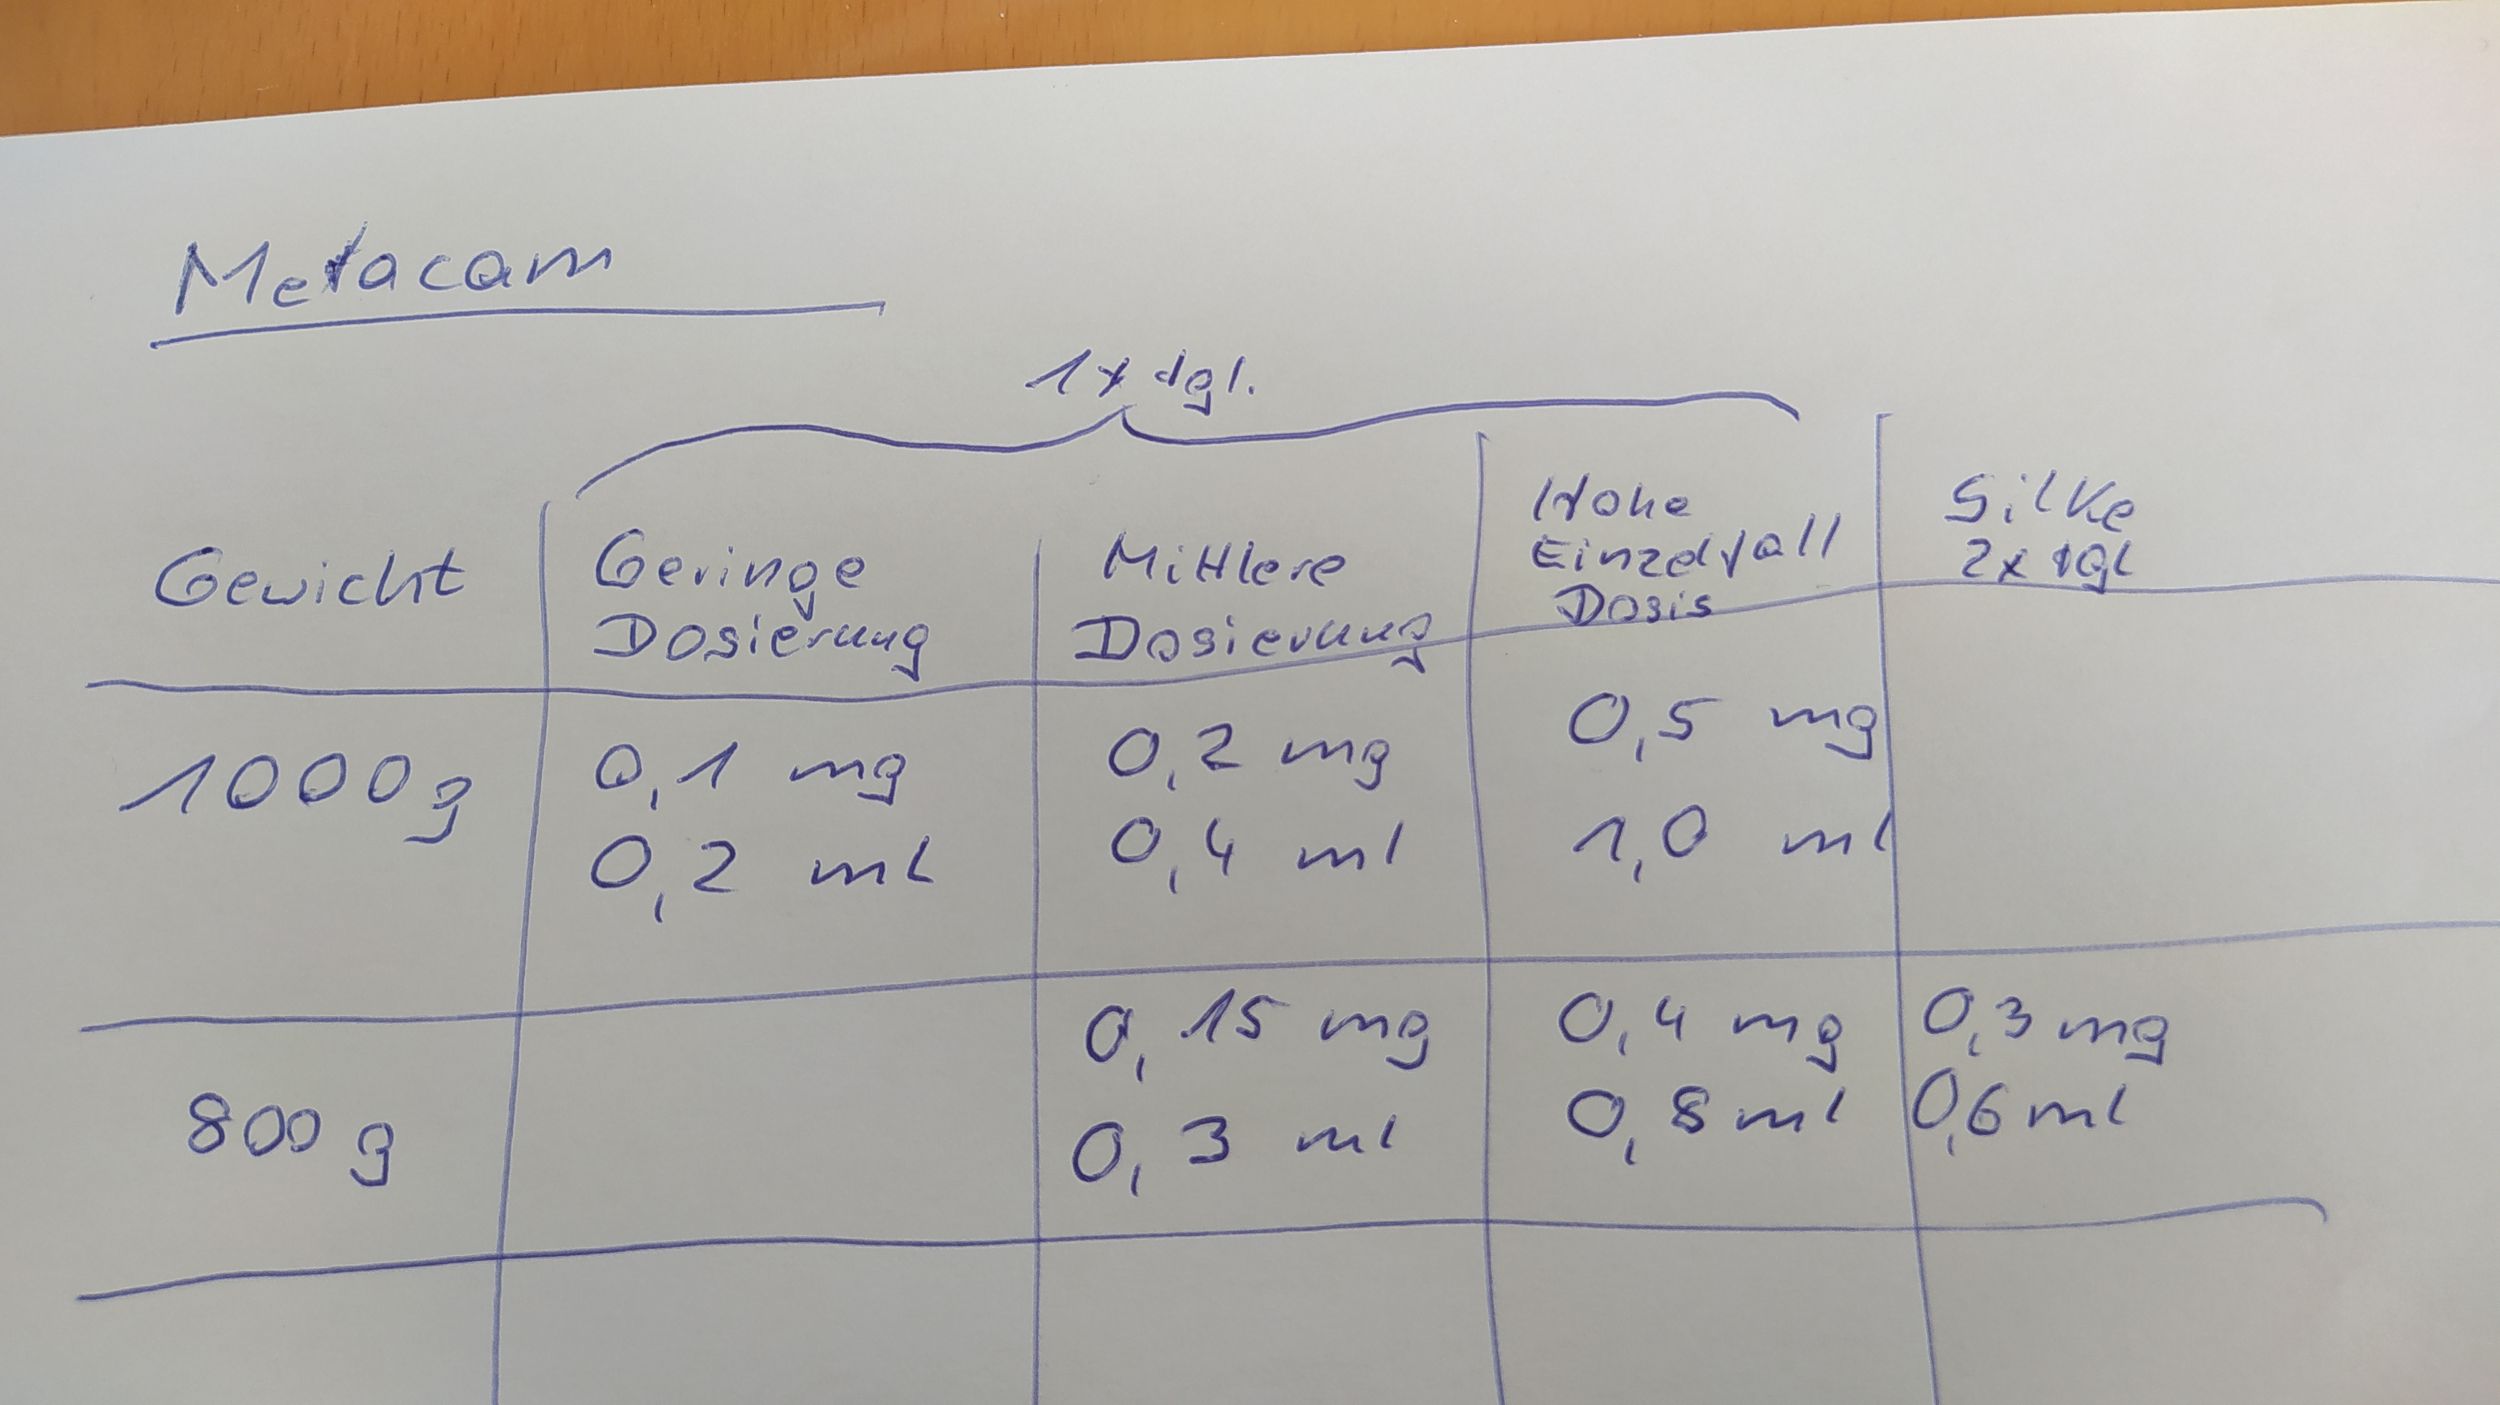 Metacam
1x tgl.
Gewicht
Geringe
Dosierung
Mittlere
Dosierung
Hohe
Einzelfall
Dosis
Silke
2x tgl
1000g
0,1 mg
0,2 ml
0,2 mg
0,4 ml
0,5 mg
1,0 ml
800 g
0,15 mg
0,3 ml
0,4 mg
0,8 ml
0,3 mg
0,6 ml